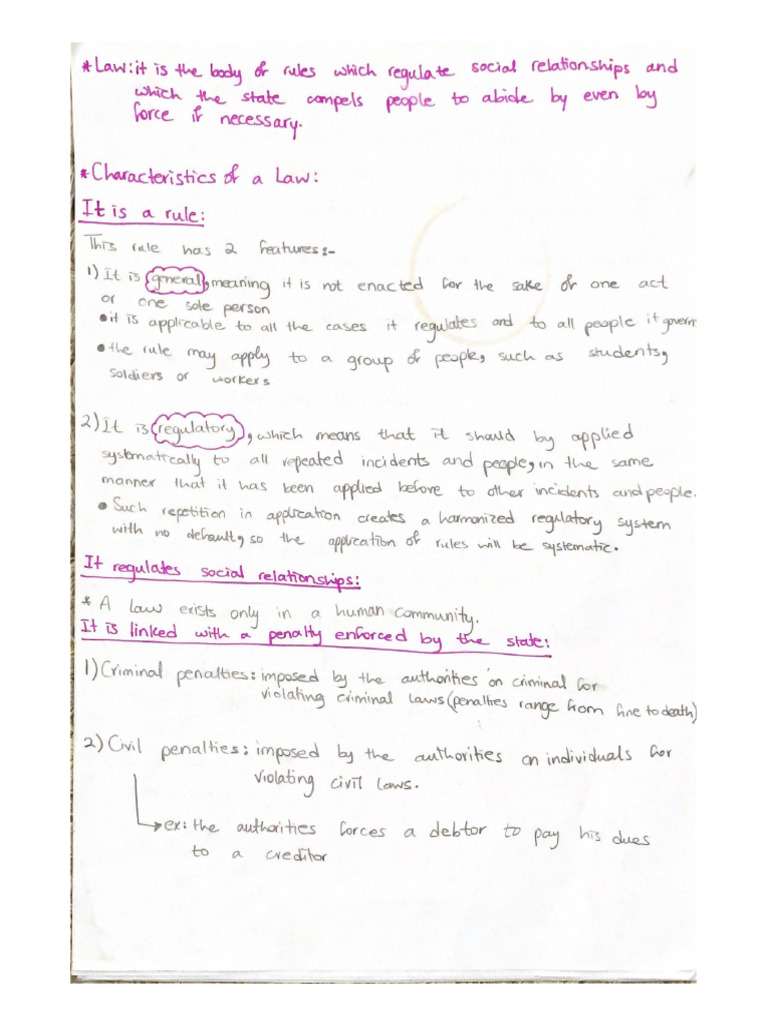 *Law:it is the body of rules which regulate social relationships and
which the state compels people to abide by even by
force if necessary.
*Characteristics of a Law:
It is a rule:
This rule has 2 features:-
1) It is general, meaning it is not enacted for the sake of one act
or one sole person
•it is applicable to all the cases it regulates and to all people it govern
•the rule may apply to a group of people, such as students,
soldiers or workers
2) It is regulatory, which means that it should by applied
systematically to all repeated incidents and people, in the same
manner that it has been applied before to other incidents and people.
• Such repetition in application creates a harmonized regulatory system
with no default, so the application of rules will be systematic.
It regulates social relationships:
* A law exists only in a human community.
It is linked with a penalty enforced by the state:
1) Criminal penalties: imposed by the authorities on criminal for
violating criminal laws (penalties range from fine to death)
2) Civil penalties: imposed by the authorities on individuals for
violating civil laws.
ex: the authorities forces a debtor to pay his dues
to a creditor